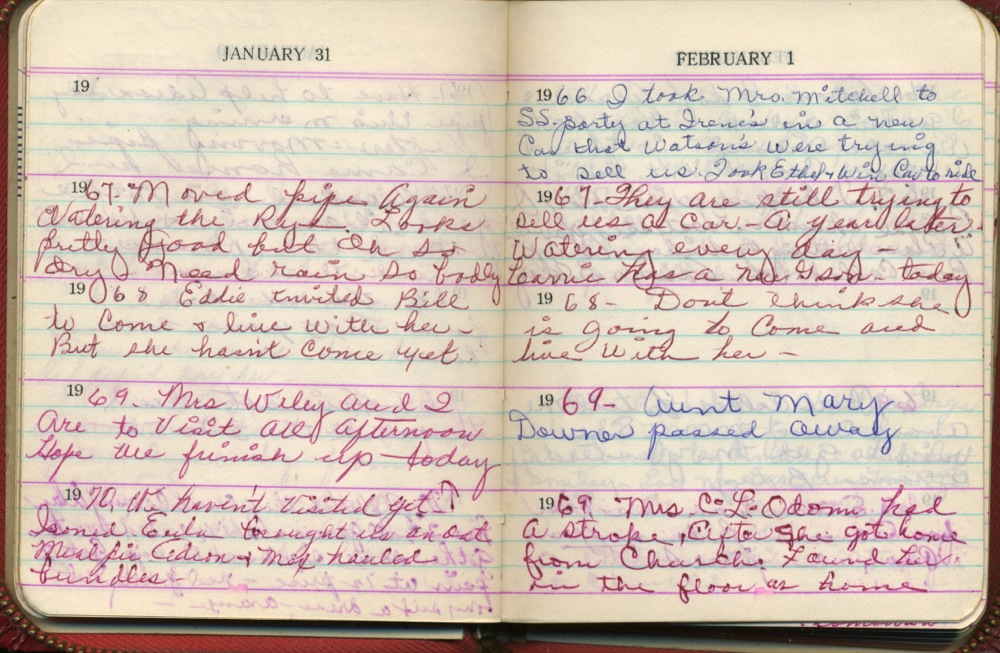 JANUARY 31
19
1967. Moved pipe Again
Watering the Rye. Looks
pretty good but Oh so
dry. Need rain so badly
1968 Eddie invited Bill
to Come & live with her -
But she hasn't Come yet
1969. Mrs Wiley and I
Are to Visit all afternoon
Hope we finish up today
1970, We haven't Visited yet
and Eula brought us an oat
& Mej hauled
bundles
FEBRUARY 1
1966 I took Mrs. Mitchell to
S.S. party at Irene's in a new
Car that Watsons were trying
to sell us. Took Ethel & Win Car to ride
1967 - They are still trying to
sell us a Car. - A year later.
Watering every day -
has a new Gson today
1968 - Dont think she
is going to Come and
live With her -
1969 - Aunt Mary
Downer passed away
1969. Mrs. C. L. Odom had
a stroke, After She got home
from Church. Found her
in the floor at home